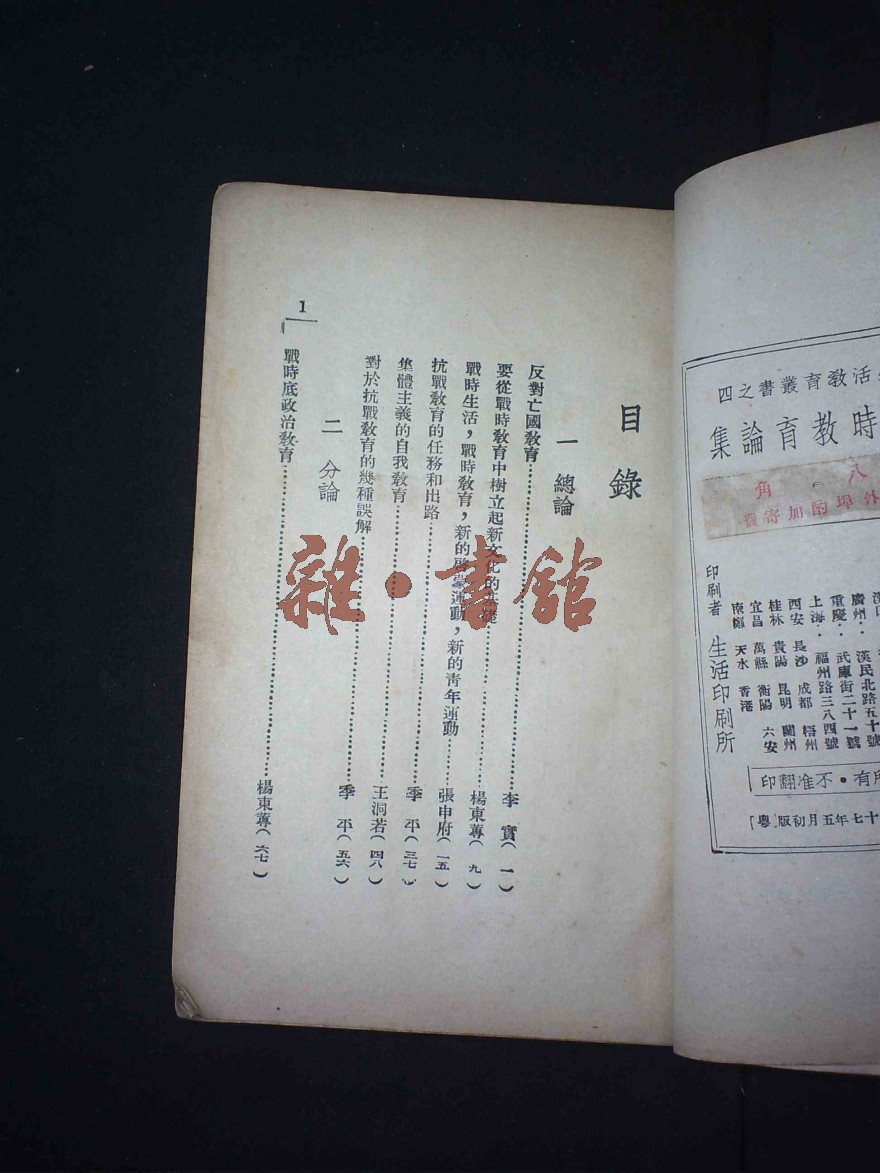 活教育叢書之四
時教育論集
八角
外埠酌加寄費
廣州・漢民北路五十號
重慶・武庫街二十一號
上海・福州路三八四號
西安 長沙 成都 梧州
桂林 貴陽 昆明 蘭州
宜昌 萬縣 衡陽 六安
南鄭 天水 香港
印刷者 生活印刷所
所有・不准翻印
十七年五月初版「粵」
目錄
一 總論
反對亡國教育……李 實(一)
要從戰時教育中樹立起新文化的基礎……楊東蓴(九)
戰時生活,戰時教育,新的啟蒙運動,新的青年運動……張申府(一五)
抗戰教育的任務和出路……季 平(三七)
集體主義的自我教育……王洞若(四八)
對於抗戰教育的幾種誤解……季 平(五六)
二 分論
戰時底政治教育……楊東蓴(六七)
1
雜・書館